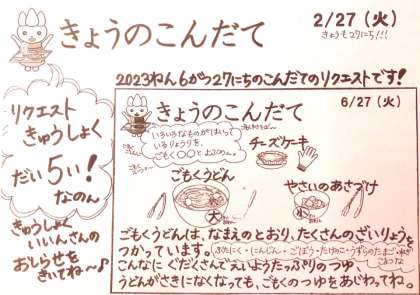 きょうのこんだて
2/27(火)
きょうも27にち!!!
2023ねん6がつ27にちのこんだてのリクエストです!
リクエスト
きゅうしょく
だい5い!
なのん
きゅうしょく
いいんさんの
おしらせを
きいてね～♪
きょうのこんだて
6/27(火)
いろいろなものがはいって
いるりょうりを、
ごもく〇〇とよぶのん。
チーズケーキ
ごもくうどん
大
やさいのあさづけ
小
ごもくうどんは、なまえのとおり、たくさんのざいりょうを
つかっています。ぶたにく・にんじん・ごぼう・たけのこ・うずらのたまご・ねぎ
こまつな
こんなにぐだくさんでえいようたっぷりのつゆ、
うどんがきになくなっても、ごもくのつゆをあじわってね。